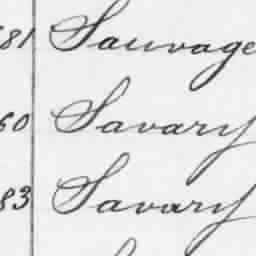 81 Sauvage
60 Savary
83 Savary